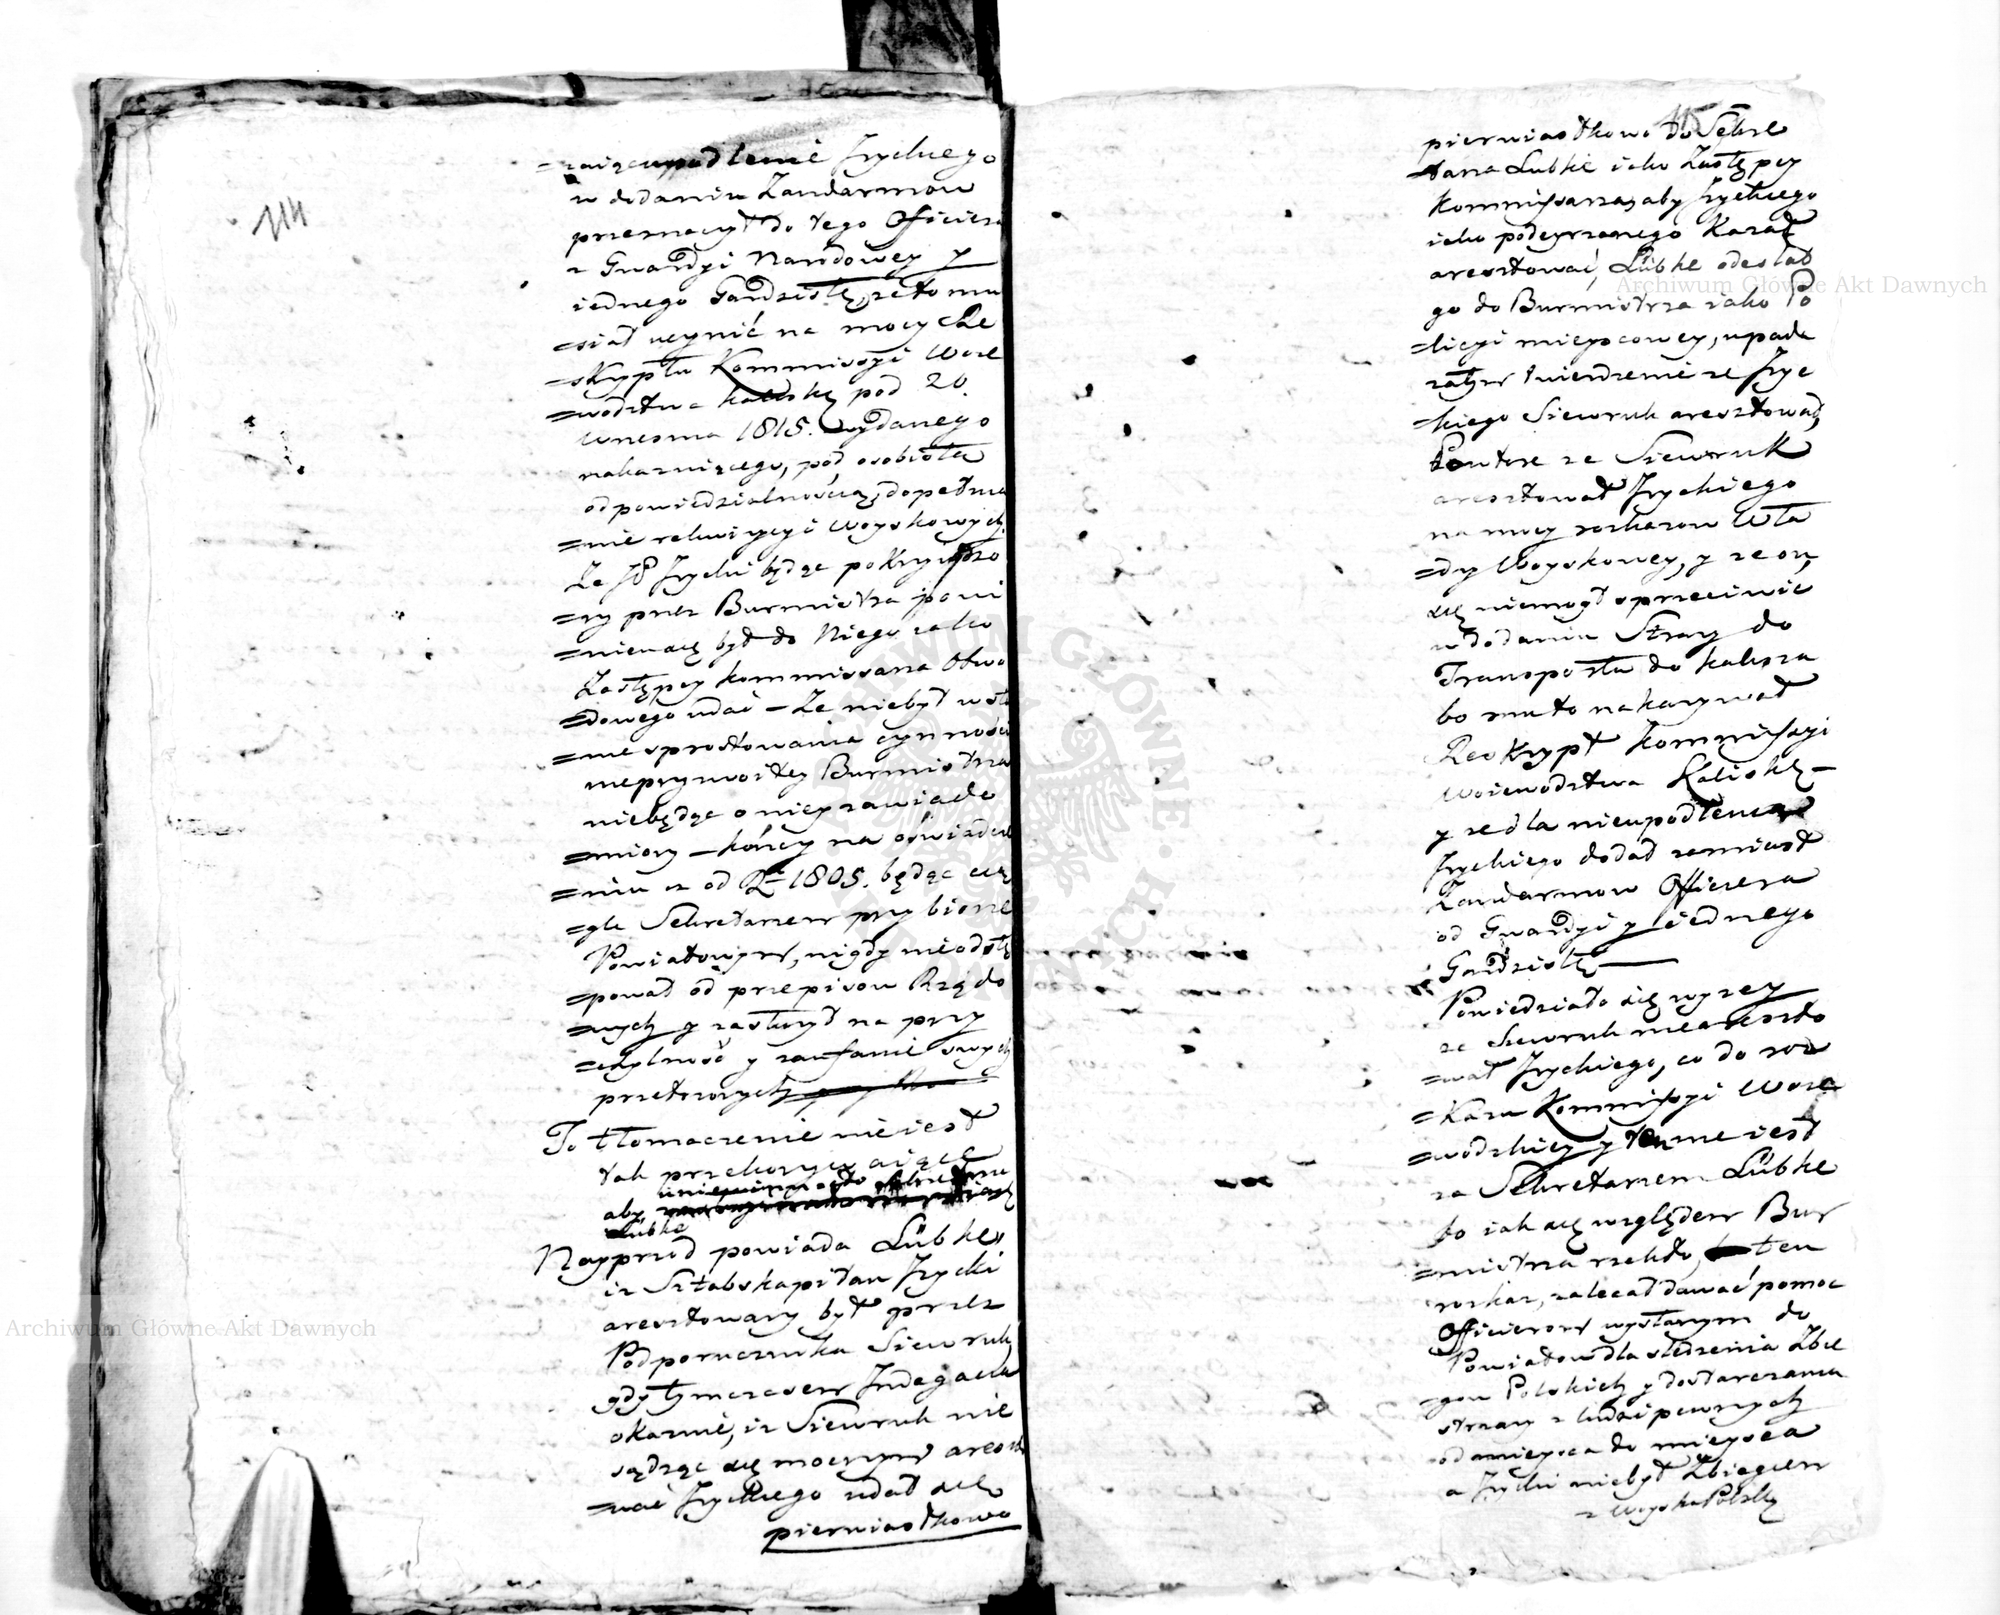 114
=raiąc upodlenie Jrzyckiego
w dodaniu Zandarmow
przeznaczył do tego Officiera
z Gwardyi Narodowey y
iednego Gwardzistę, że to mu
=siał uczynić na mocy Re
=skryptu Kommissyi Woie
=wodztwa Kaliskẽ pod 20.
Wrzesnia 1815. wydanego
nakazuiącego, pod osobistą
odpowiedzialnością, dopełnia
=nie rekwizycyi Woyskowych.
Że JP Jrzycki będąc pokrzywdzo
=ny przez Burmistrza powi
=nien się był do Niego iako
Zastępcy Kommissarza Obwo
=dowego udać – Że nie był w sta
=nie sprostowania czynności
nieprzyzwoitey Burmistrza
niebędąc o niey zawiado
=miony – kończy na oświadcze
=niu iż od R. 1805. będąc cią
=gle Sekretarzem przy biorze
Powiatowym, nigdy nieodstę
=pował od przepisow Rządo
=wych y zasłużył na przy
=chylność y zaufanie swych
przełozonych
To tłomaczenie nie iest
tak przekonywaiące
aby uniewinniało Sekretarza
Lübke
Nayprzod powiada Lübke,
iż Sztabskapitan Jrzycki
aresztowany był przez
Podporucznika Siewruk
gdy tymczasem Indagacia
okazuie, iż Siewruk nie
sądząc się mocnym areszto
=wać Jrzyckiego udał się
pierwiastkowo
115
pierwiastkowo do Sekre
=tarza Lubke iako Zastępcy
Kommissarza, aby Jrzyckiego
iako podeyrzanego Kazał
aresztować, Lübke odesłał
go do Burmistrza iako Po
=licyi mieyscowey, upada
zatym twierdzenie że Jrzyc
=kiego Siewruk aresztował,
Powtore że Siewruk
aresztował Jrzyckiego
na mocy rozkazow Wła
=dzy Woyskowey, y że on,
się niemogł sprzeciwić
w dodaniu Straży do
Transportu do Kalisza
bo mu to nakazywał
Reskrypt Kommissyi
Woiewodztwa Kaliskẽ –
y że dla nieupodlenia
Jrzyckiego dodał zamiast
Zandarmow Officiera
od Gwardyi y iednego
Gwardzistę
Powiedziało się wyżey
że Siewruk nie areszto
=wał Jrzyckiego, co do roz
=kazu Kommissyi Woie
=wodzkiey y ten nie iest
za Sekretarzem Lübke
bo iak się względem Bur
=mistrza rzekło, ten
rozkaz, zalecał dawać pomoc
Officierom wysłanym do
Powiatow dla sledzenia Zbie
=gow Polskich y dostarczania
straży z ludzi pewnych
od mieysca do mieysca
a Jrzycki niebył Zbiegiem
z Woyska Polskẽ
Archiwum Główne Akt Dawnych
Archiwum Główne Akt Dawnych